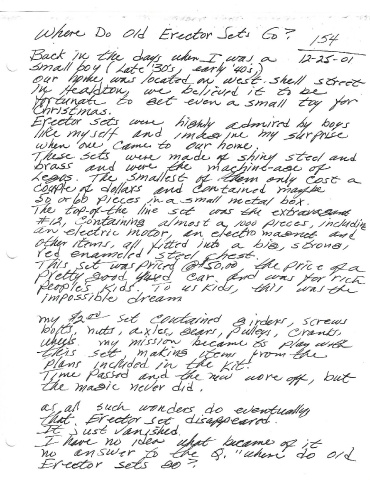 Where Do Old Erector Sets Go?
154
12-25-01
Back in the days when I was a
small boy (late '30's, early '40's)
our home was located on west shell street
in we believed it to be
fortunate to get even a small toy for
Christmas.
Erector sets were highly admired by boys
like myself and imagine my surprise
when one came to our home.
These sets were made of shiny steel and
brass and were the machine-age of
Legos. The smallest of them only cost a
couple of dollars and contained maybe
50 or 60 pieces in a small metal box.
The top-of-the line set was the
#12, containing almost a 1000 pieces, including
an electric motor, an electro magnet and
other items, all fitted into a big, strong,
red enameled steel chest.
This set was priced @ $50.00, the price of a
pretty good used car, and was for rich
people's kids. To us kids, this was the
impossible dream
my set contained girders, screws
bolts, nuts, axles, gears, pulleys, cranks
wheels my mission became to play with
this set, making items from the
plans included in the kit.
Time passed and the new wore off, but
the magic never did.
as all such wonders do eventually
that Erector set disappeared.
It just vanished.
I have no idea what became of it
no answer to the Q. "where do old
Erector sets go?"